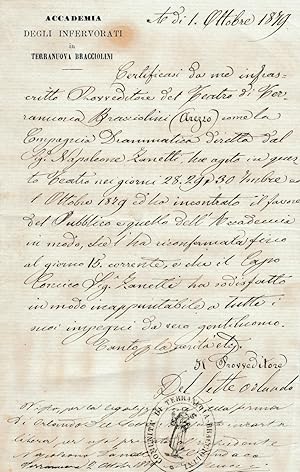 ACCADEMIA
DEGLI INFERVORATI
in
TERRANUOVA BRACCIOLINI
A dì 1. Ottobre 1879
Certificasi da me infra=
scritto Provveditore del Teatro di Ter=
ranuova Bracciolini (Arezzo) come la
Compagnia Drammatica diretta dal
Sig. Napoleone Zanetti, ha agito in ques
to Teatro nei giorni 28. 29. e 30 7mbre ed
1 Ottobre 1879 ed ha incontrato il favore
del Pubblico e quello dell'Accademia
in modo, che l'ha riconfermata fino
al giorno 15 corrente, e che il Capo
Comico Sig. Zanetti ha sodisfatto
in modo inappuntabile a tutti i
suoi impegni da vero gentiluomo.
Tanto per la verità
Il Provveditore
Del Sette Orlando
Visto per la legalizzazione della firma
di Orlando
libera per
Napoleone Zanetti
Terranuova 2 Ottobre 1879
COMUNITÀ DI TERRANUOVA